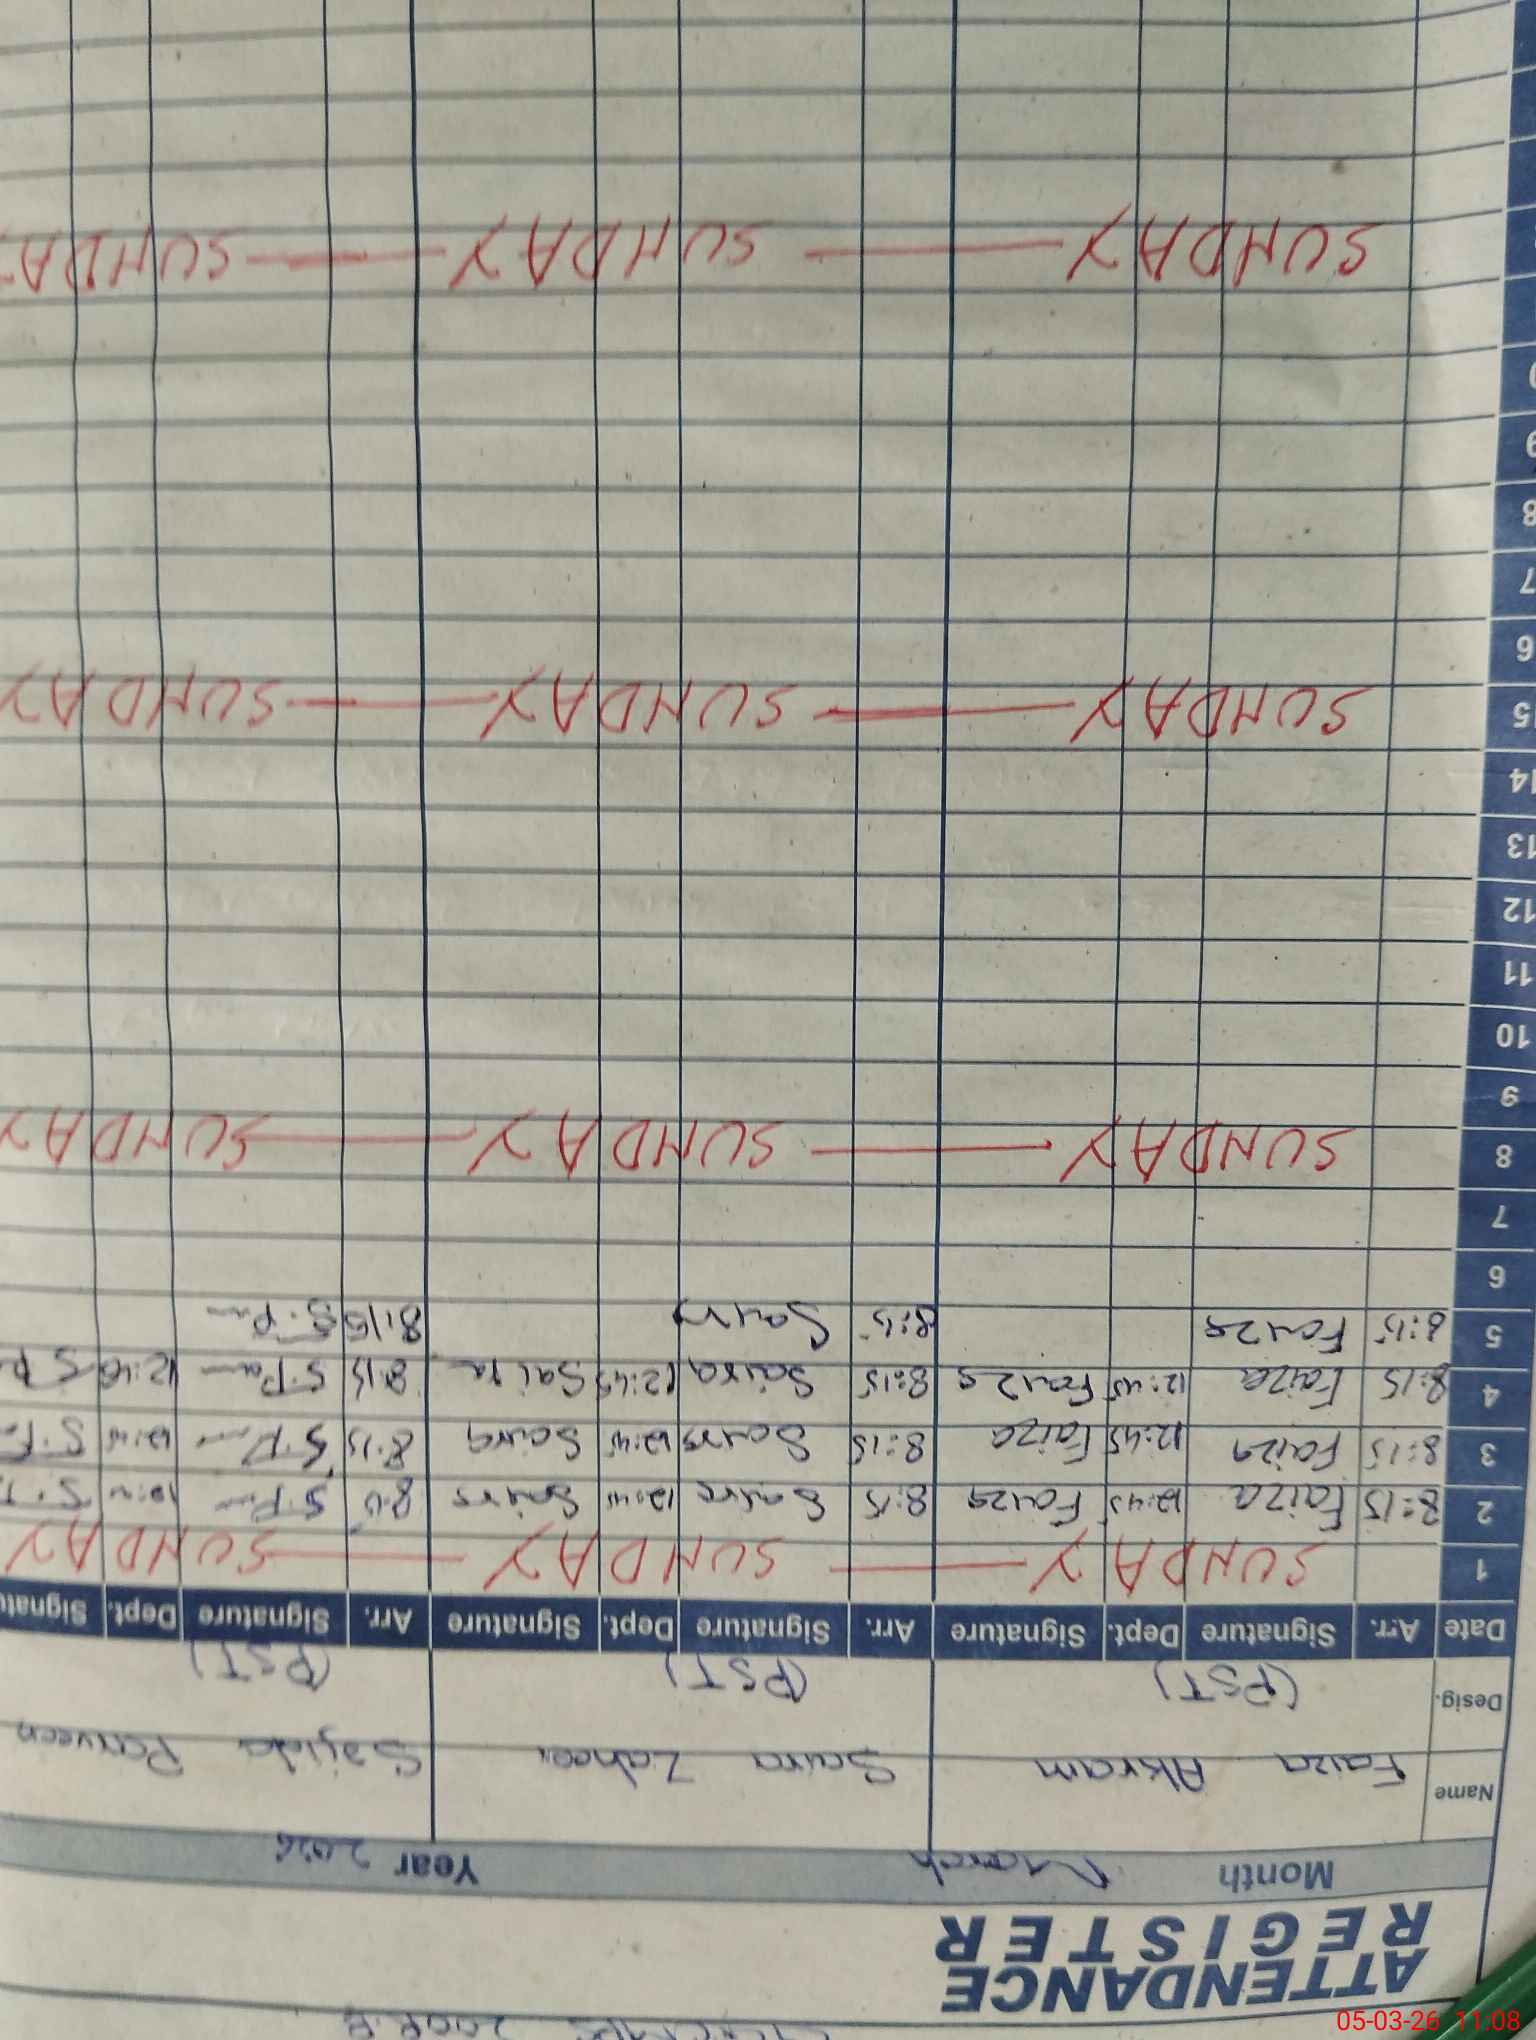 ATTENDANCE
REGISTER
Month March Year 2026
Name Faiza Akram Saira Zaheer Sajida Parveen
Desig. (PST) (PST) (PST)
Date Arr. Signature Dept. Signature Arr. Signature Dept. Signature Arr. Signature Dept. Signatu
1 SUNDAY SUNDAY SUNDAY
2 8:15 Faiza 12:45 Faiza 8:15 Saira 12:45 Saira 8:15 S.P
3 8:15 Faiza 12:45 Faiza 8:15 Saira 12:45 Saira 8:15 S.P 12:45
4 8:15 Faiza 12:45 Faiza 8:15 Saira 12:45 Saira 8:15 S.P 12:45 S.P
5 8:15 Faiza 8:15 Saira 8:15 S.P
6
7
8 SUNDAY SUNDAY SUNDAY
9
10
11
12
13
14
15 SUNDAY SUNDAY SUNDAY
6
7
8
9
0
SUNDAY SUNDAY SUNDAY
05-03-26 11:08